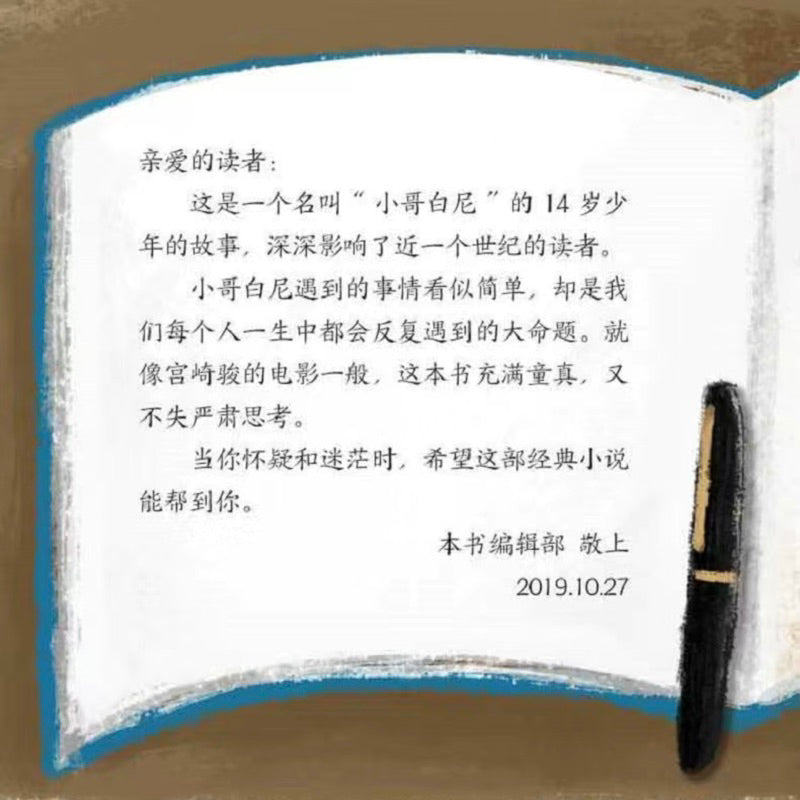 亲爱的读者：
这是一个名叫“小哥白尼”的 14 岁少
年的故事，深深影响了近一个世纪的读者。
小哥白尼遇到的事情看似简单，却是我
们每个人一生中都会反复遇到的大命题。就
像宫崎骏的电影一般，这本书充满童真，又
不失严肃思考。
当你怀疑和迷茫时，希望这部经典小说
能帮到你。
本书编辑部 敬上
2019.10.27